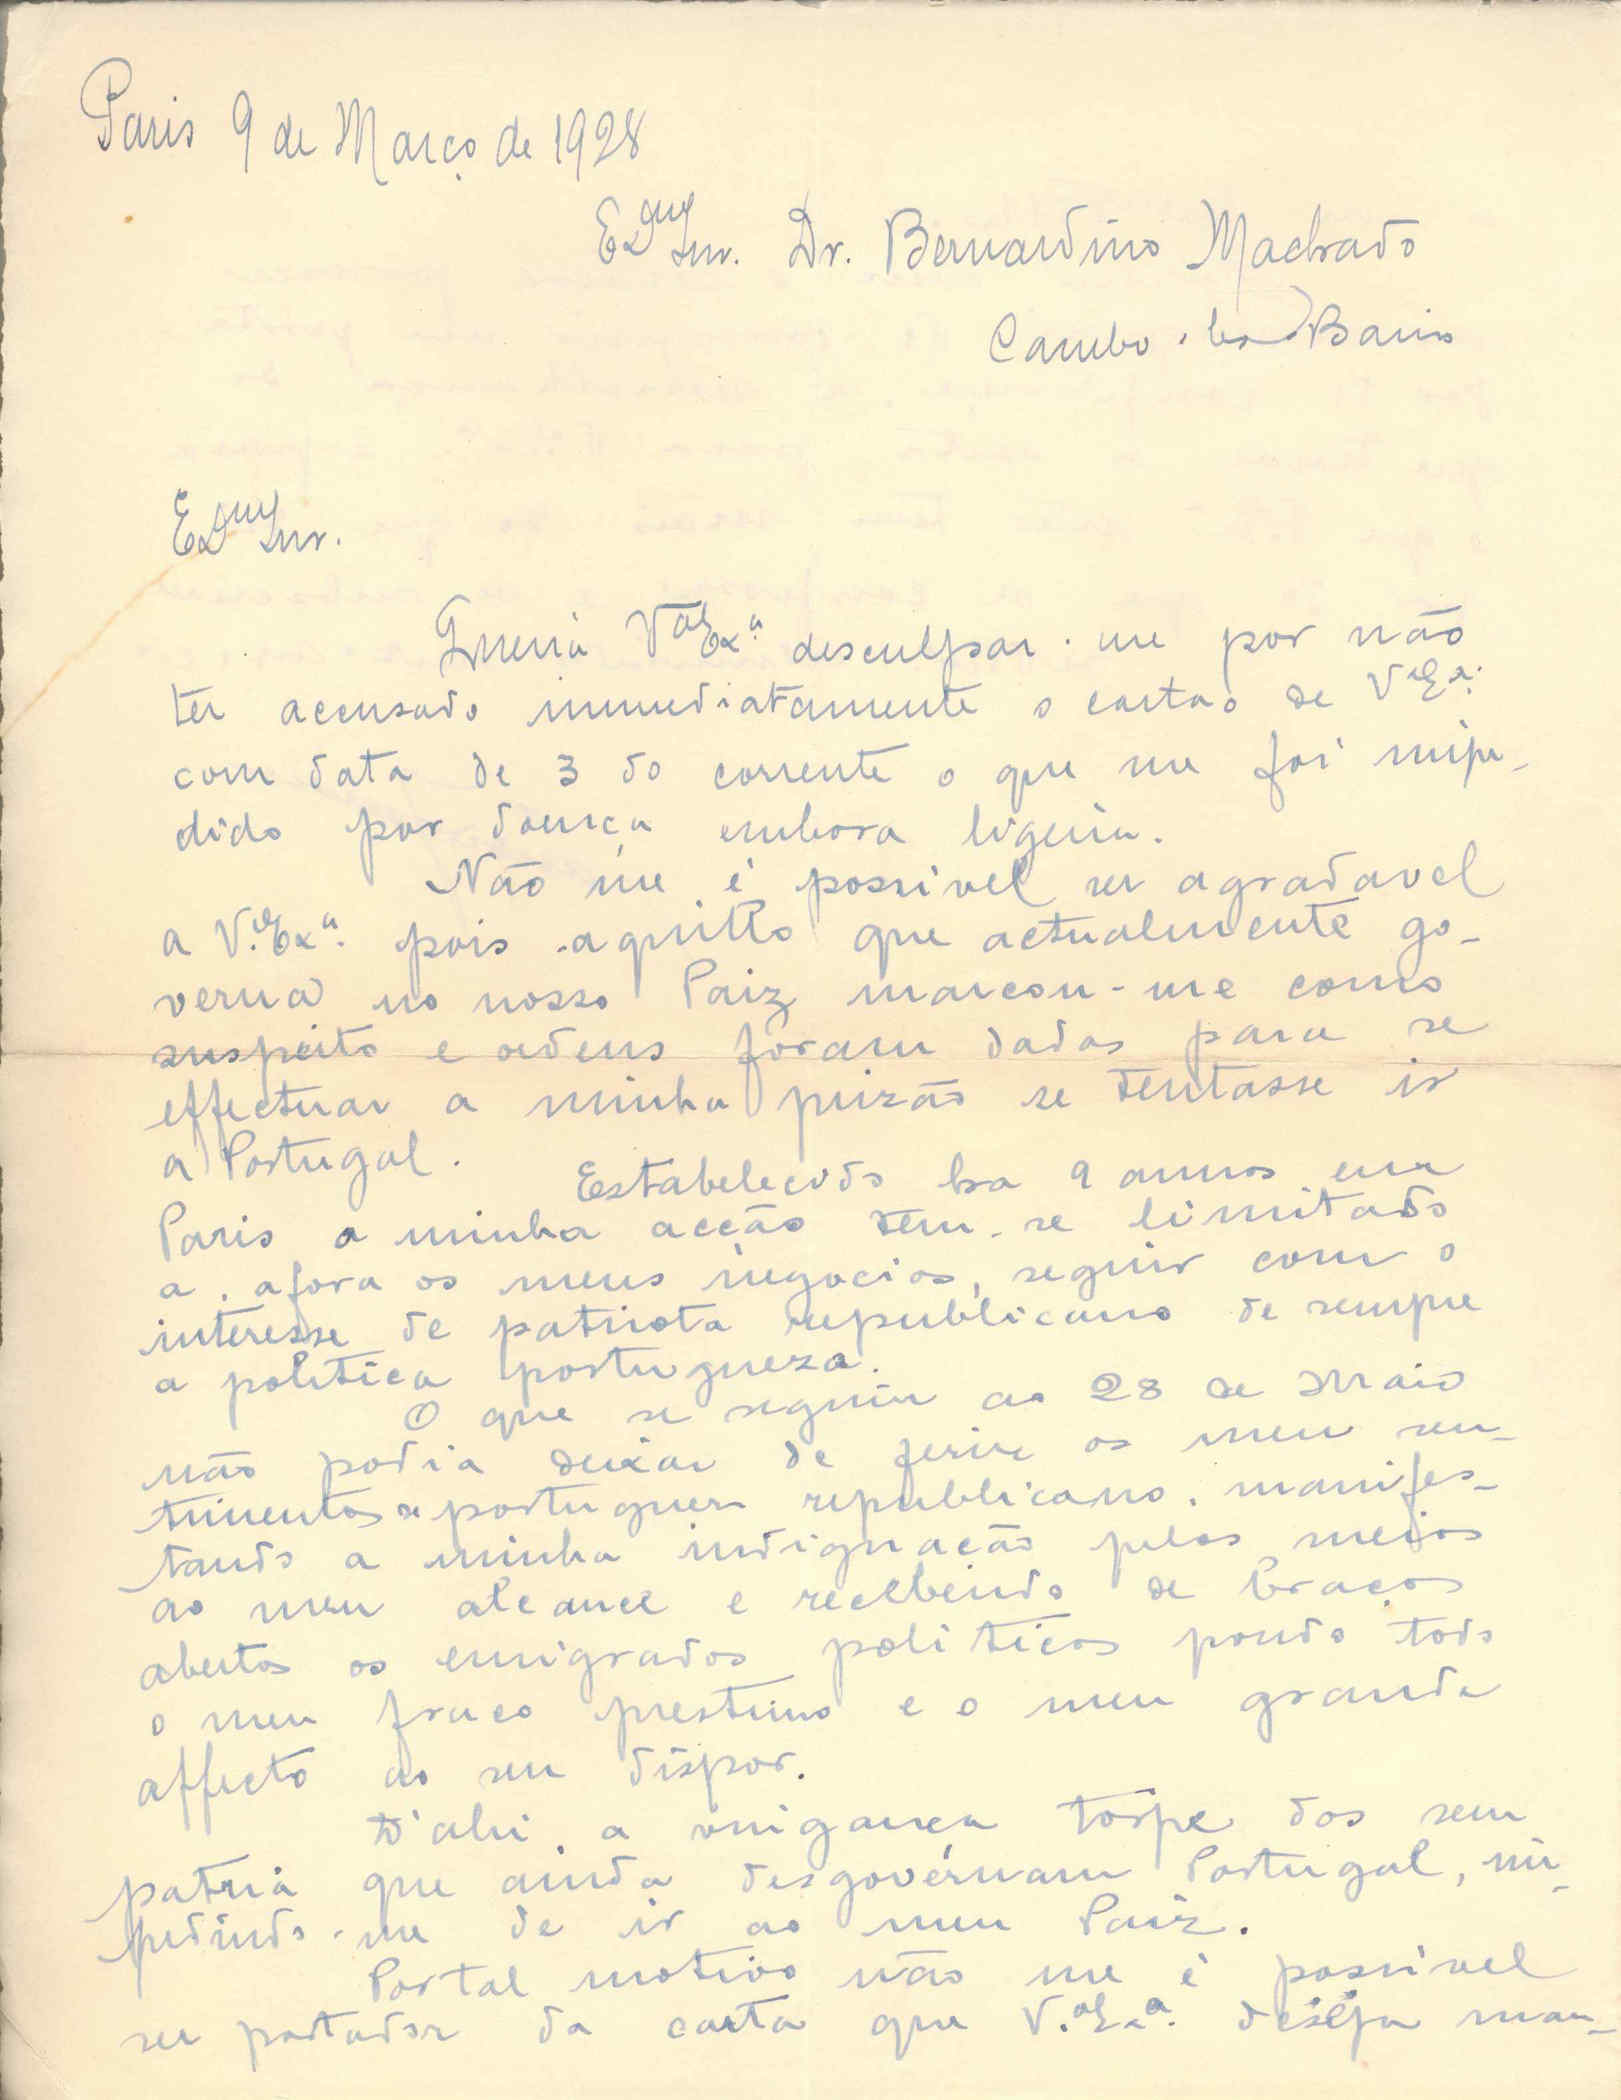 Paris 9 de Março de 1928
Exmo Snr. Dr. Bernardino Machado
Cambo-les-Bains
Exmo Snr.
Queira Va Exa desculpar-me por não
ter accusado immediatamente o cartao de Va Exa.
com data de 3 do corrente o que me foi impe-
dido por doença embora ligeira.
Não me é possivel ser agradavel
a V.a Exa. pois aquillo que actualmente go-
verna no nosso Paiz marcou-me como
suspeito e ordens foram dadas para se
effectuar a minha prizão se tentasse ir
a Portugal.
Estabelecido ha 9 annos em
Paris a minha acção tem-se limitado
a, afora os meus negocios, seguir com o
interesse de patriota republicano de sempre
a politica portugueza.
O que se seguiu ao 28 de Maio
não podia deixar de ferir os meu sen-
timentos de portuguez republicano, manifes-
tando a minha indignação pelos meios
ao meu alcance e recebendo de braços
abertos os emigrados politicos pondo todo
o meu fraco prestimo e o meu grande
affecto ao seu dispor.
D'ahi, a vingança torpe dos sem
patria que ainda desgovérnam Portugal, im-
pedindo-me de ir ao meu Paiz.
Por tal motivo não me é possivel
ser portador da carta que V.a Exa. deseja man-